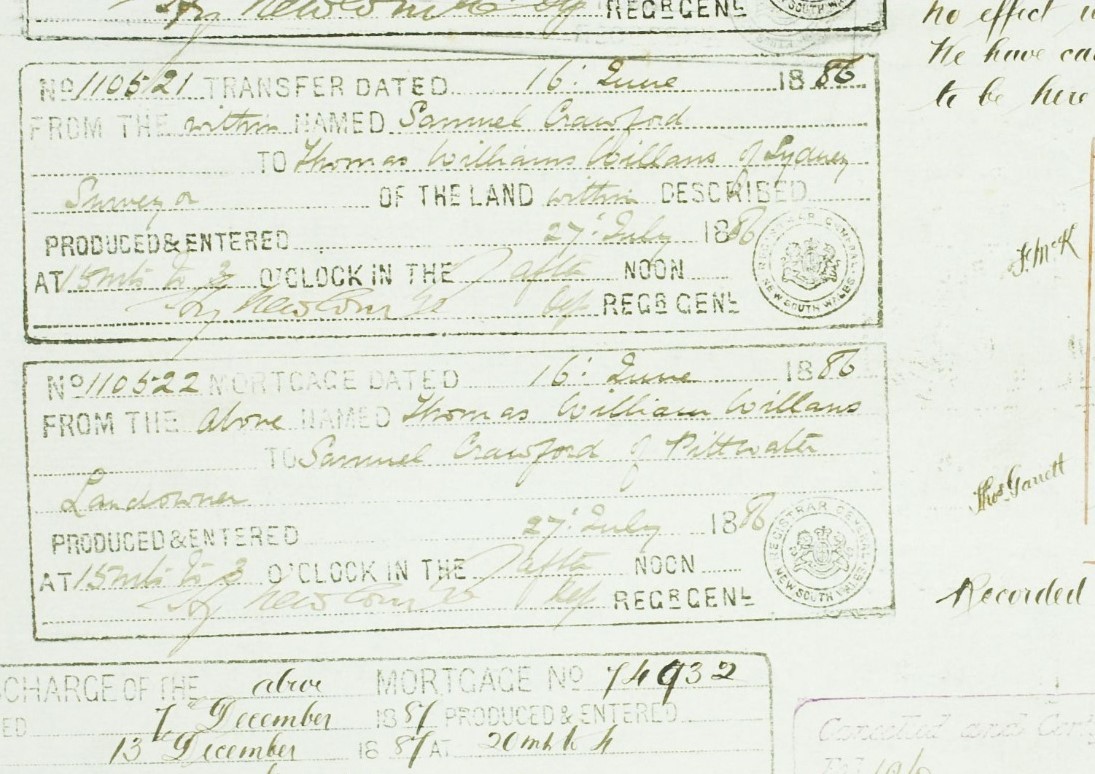 REGR GENL
No 110521 TRANSFER DATED 16: June 1886
FROM THE within NAMED Samuel Crawford
TO Thomas Williams Willans of Sydney
Surveyor OF THE LAND within DESCRIBED
PRODUCED & ENTERED 27: July 1886
AT 15 mts to 3 O'CLOCK IN THE after NOON
REGR GENL
REGISTRAR GENERAL NEW SOUTH WALES
No 110522 MORTGAGE DATED 16: June 1886
FROM THE above NAMED Thomas William Willans
TO Samuel Crawford of Pittwater
Landowner
PRODUCED & ENTERED 27: July 1886
AT 15 mts to 3 O'CLOCK IN THE after NOON
REGR GENL
REGISTRAR GENERAL NEW SOUTH WALES
SCHARGE OF THE above MORTGAGE No 74932
ED 7 December 1887 PRODUCED & ENTERED
13 December 1887 AT 20 mts to 4
no effect
He have
to be here
J. McK
Thos Garrett
Recorded